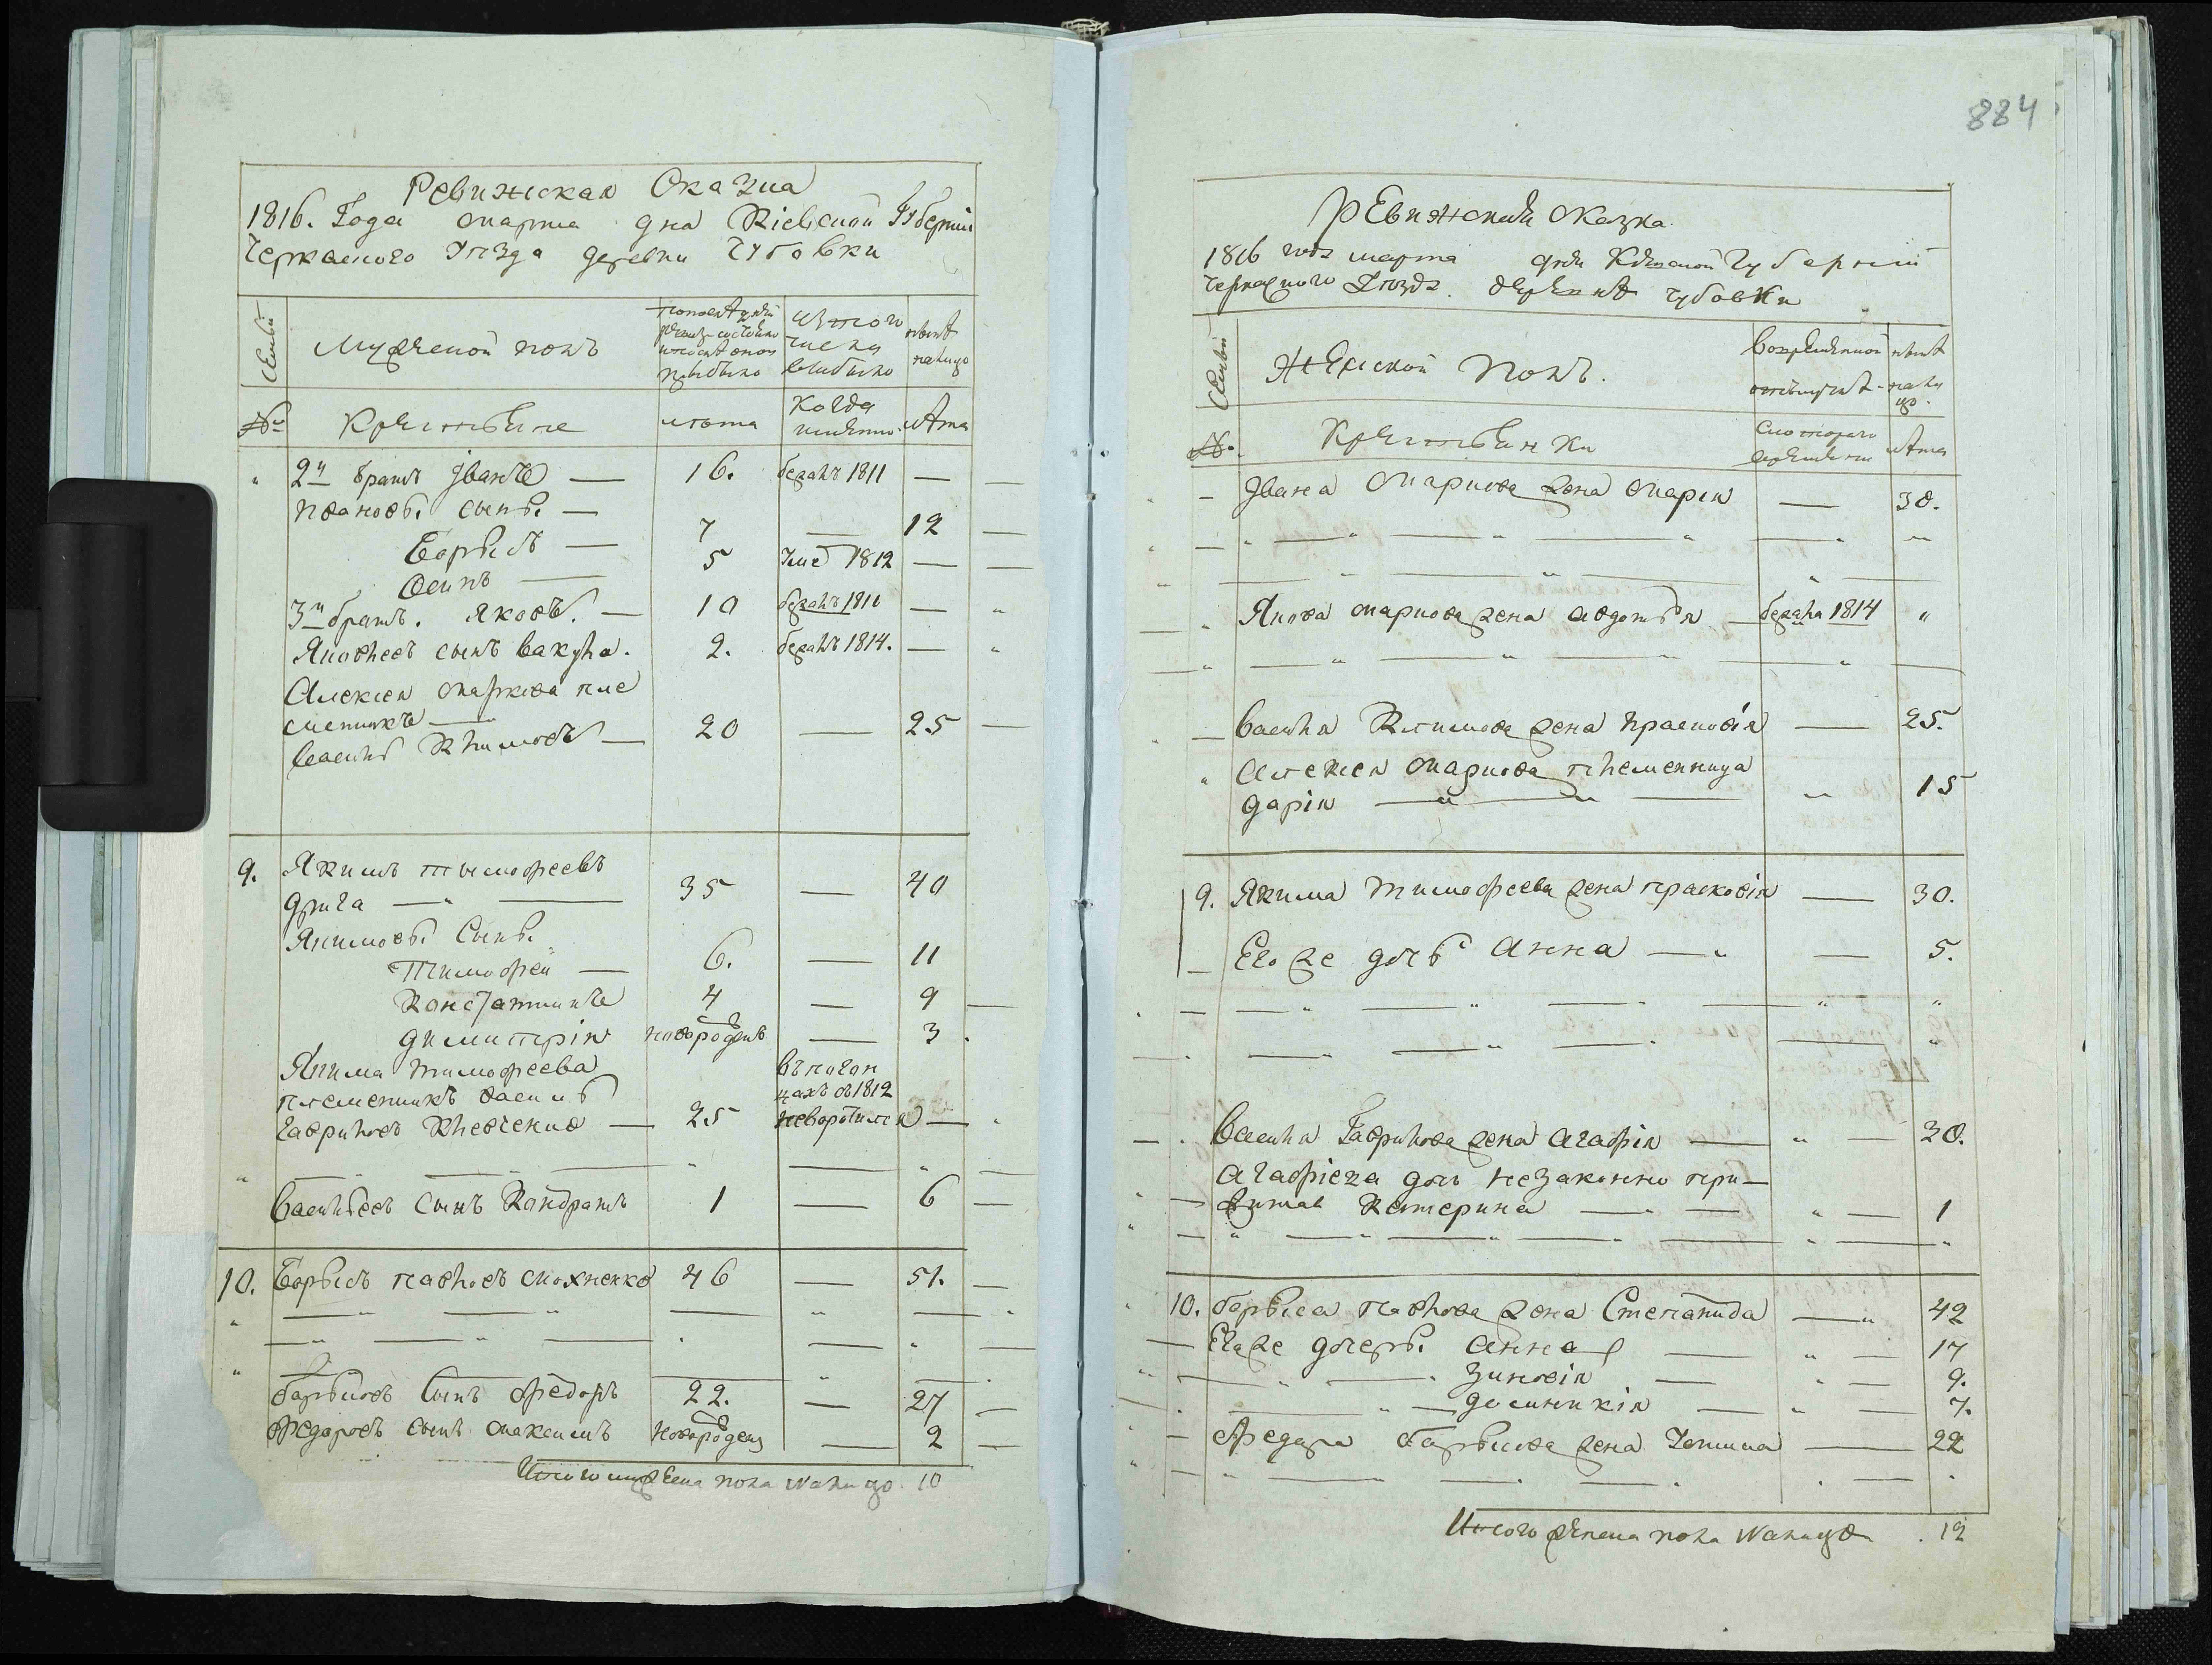 Ревижская Сказка
1816. Года марта дна Киевской Губернии
Черкаского Уезда деревни Чубовки
Семьи
Мужеской полъ
По последней ревизии состояло и после оной прибыло
Изтого числа выбыло
ныне налицо
№
Крестьяне
лета
Когда именно
лета
2й братъ Іванъ — 16. бежалъ 1811 —
Ивановы сыны —
Борысъ — 7 — 12
Осипъ — 5 Уме 1812 —
3й братъ. Яковъ. — 10 бежалъ 1811 —
Яковлевъ сынъ Вакула. 2. бежалъ 1814. —
Алексея Маркова пле
менникъ —
Василь Климовъ — 20 — 25
9. Якимъ Тымофеевъ
Дрига — 35 — 40
Якимовы Сыны
Тимофей — 6. — 11
Констатинъ 4 — 9
Димитрій новорожденъ — 3
Якима Тимофеева
племенникъ Василь
Гавриловъ Клевченко — 25 въ погонцахъ въ 1812 неворотился —
Васильевъ Сынъ Кондратъ 1 — 6
10. Борысъ Павловъ Мохненко 46 — 51.
Борысовъ Сынъ Федоръ 22. — 27
Федоровъ сынъ Максимъ новорожденъ — 2
Итого мужеска пола налицо 10
884
Ревижская сказка.
1816 года марта дня Киевской Губернии
Черкаского Уезда деревне Чубовки
Семьи
Женской Полъ.
Вовременной отлучке
ныне налицо.
№.
Крестьянки
Скоторого времени
лета
Івана Маркова жена Мария — 30.
Якова Маркова жена Авдотья — бежала 1814
Василя Климова жена Прасковія — 25.
Алексея Маркова племенница
Дарія — 15
9. Якима Тимофеева жена Прасковія — 30.
Его же дочь Анна — 5.
Василя Гаврилова жена Агафія — 30.
Агафіина дочь незаконно при-
житая Катерина — 1
10. Борыса Павлова жена Степанида — 42
Его же дочеры Анна — 17
Зиновія — 9.
Домникія — 7.
Федора Борысова жена — 22
Итого женска пола налицо . 12